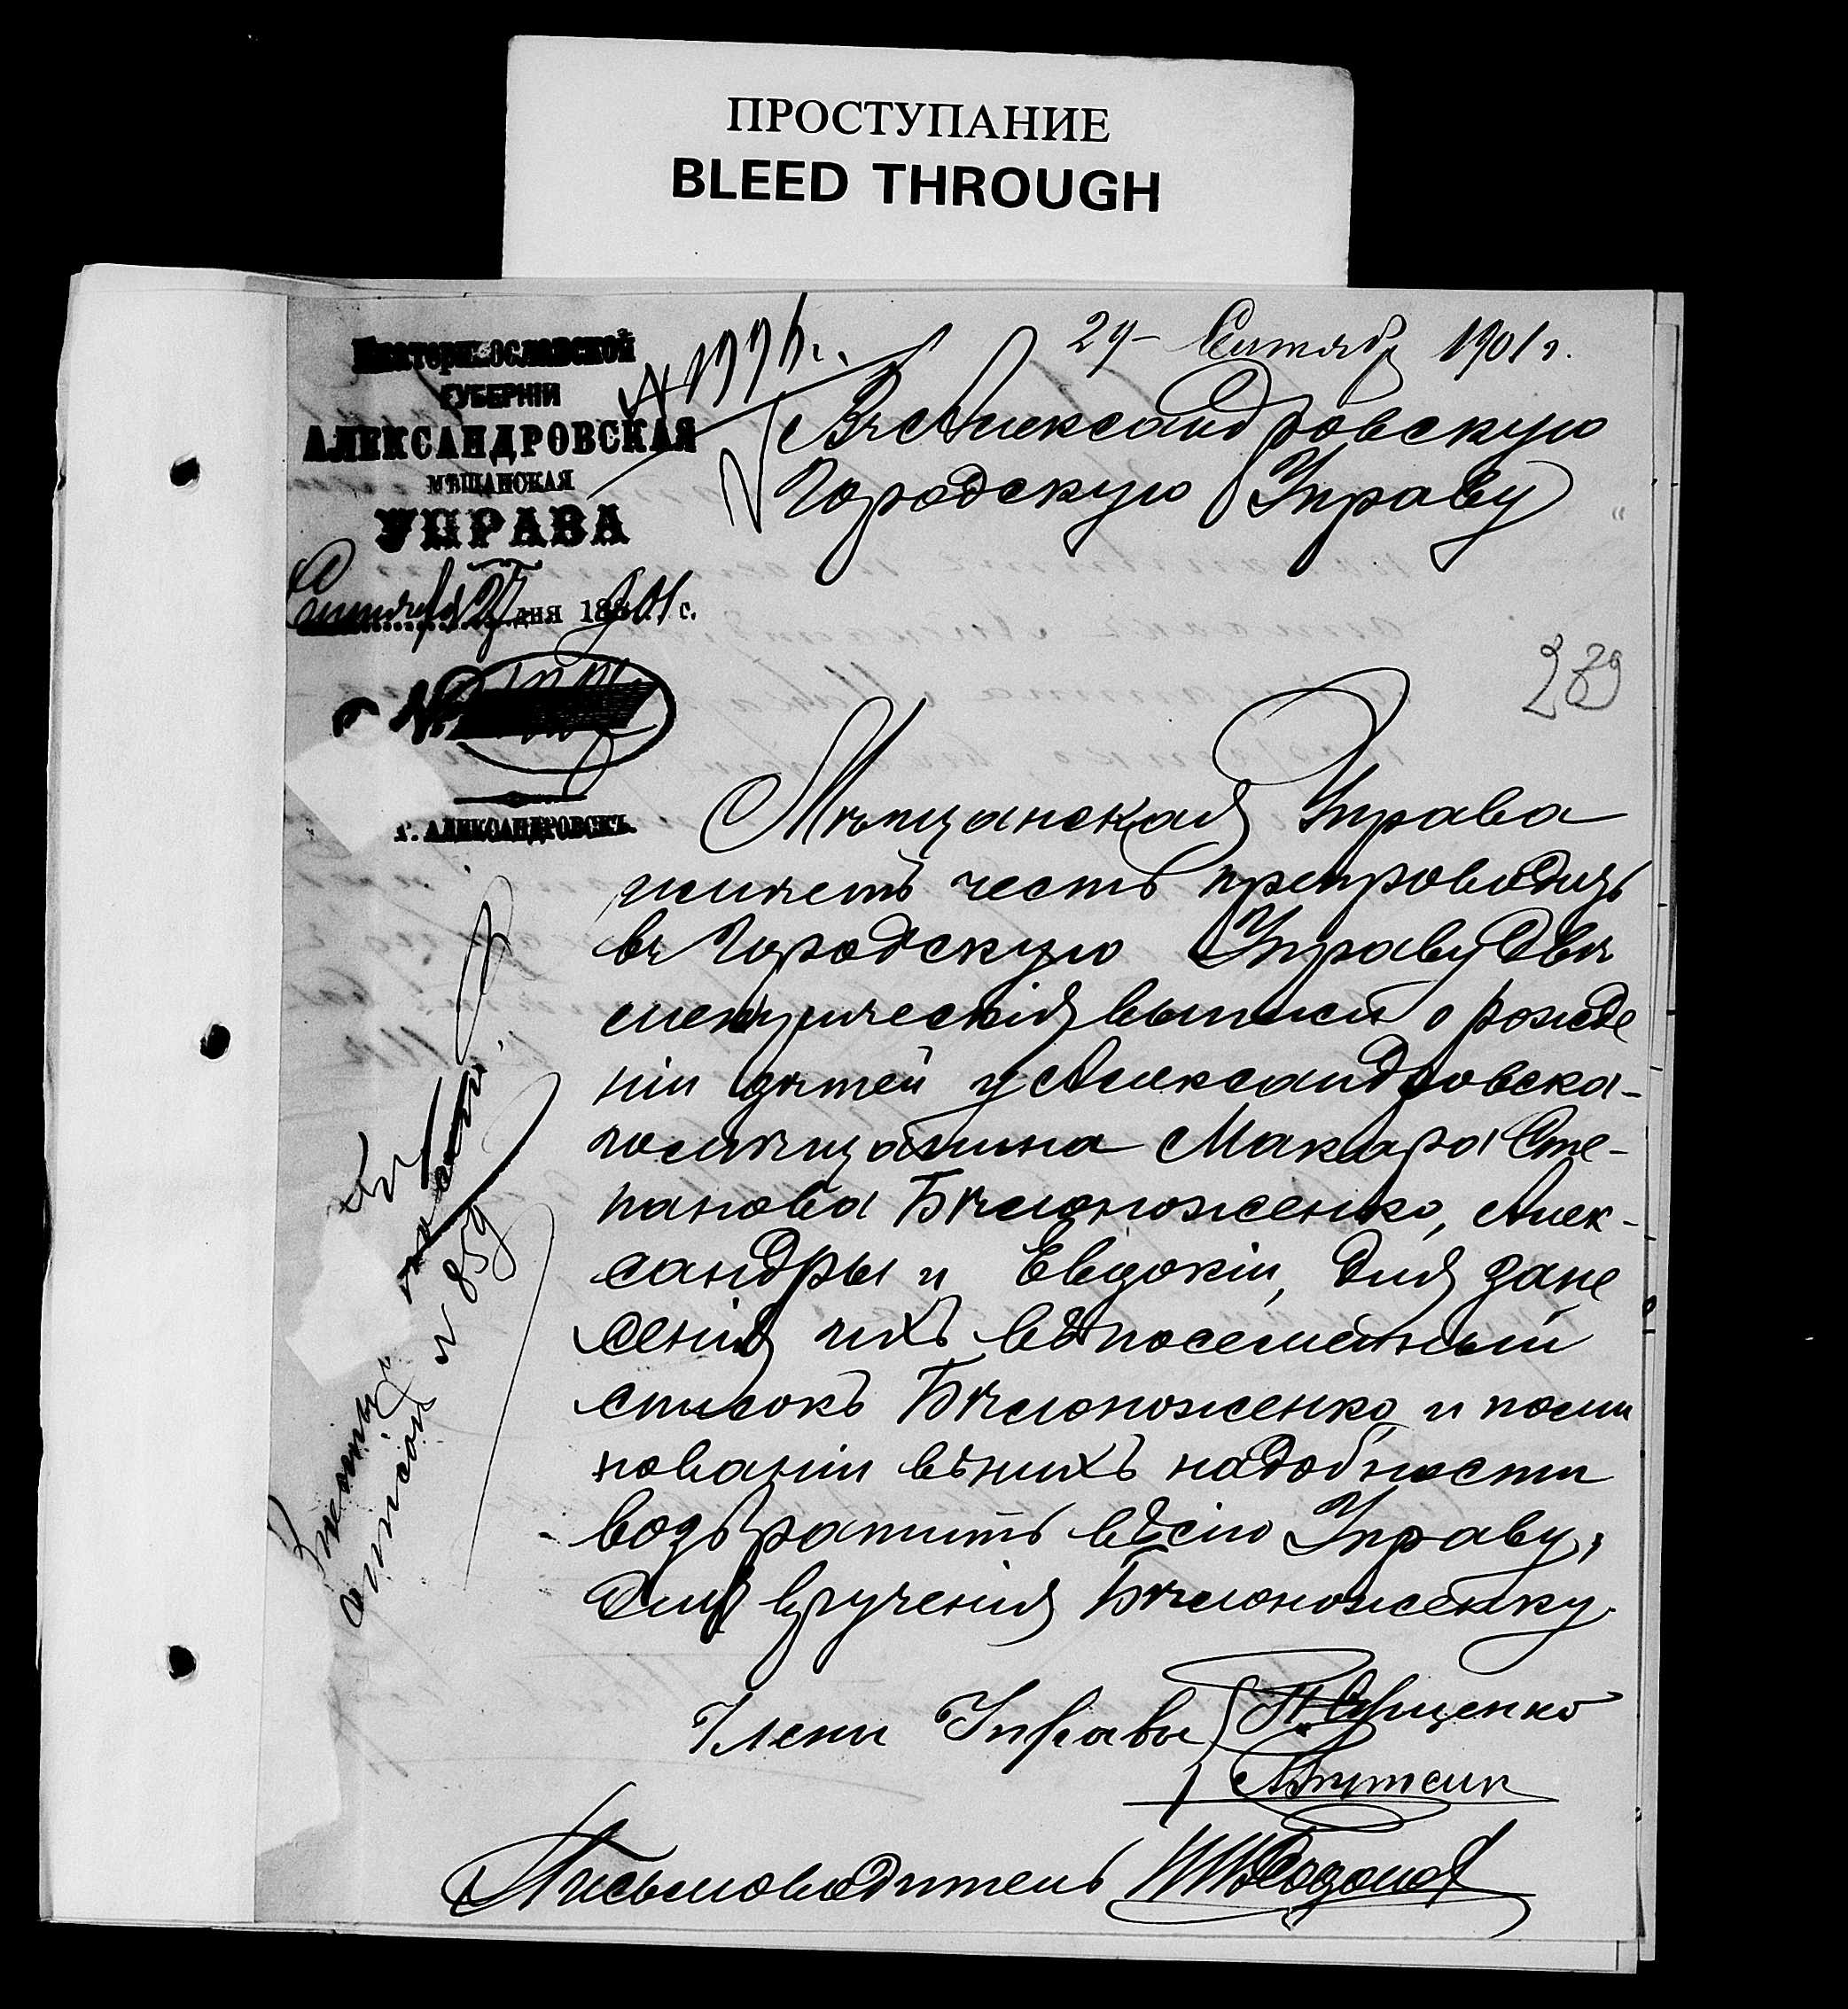 ПРОСТУПАНИЕ
BLEED THROUGH
Екатеринославской
ГУБЕРНІИ
АЛЕКСАНДРОВСКАЯ
МѢЩАНСКАЯ
УПРАВА
Сентября 27 дня 1901 г.
№
Г. АЛЕКСАНДРОВСКЪ.
29 Сентября 1901 г.
Въ Александровскую
Городскую Управу
239
Мѣщанская Управа
имѣетъ честь препроводить
въ Городскую Управу двѣ
метрическія выписи о рожде
ніи дѣтей у Александровска-
го мѣщанина Макара Сте-
панова Бѣлоноженко, Алек-
сандры и Евдокіи, для зане
сенія ихъ въ посемейный
списокъ Бѣлоноженко, и по ми
нованіи въ нихъ надобности
возвратить въ сію Управу,
для врученія Бѣлоноженку.
Члены Управы
Письмоводитель
списокъ № 859